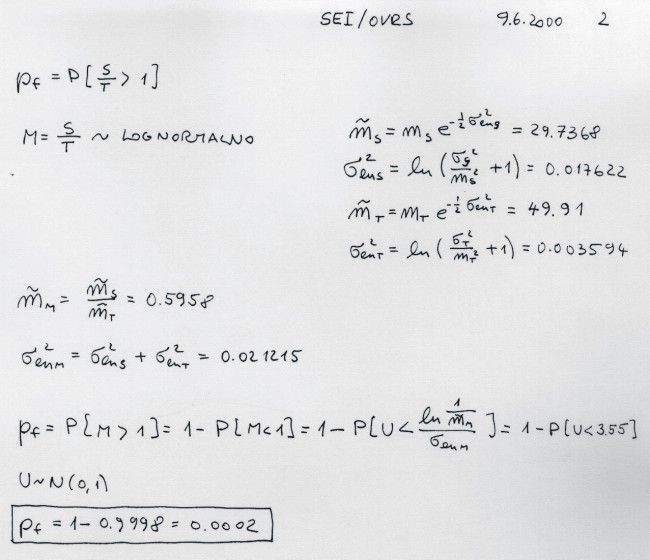 SEI/OVRS 9.6.2000 2
p_f = P[S/T > 1]
M = S/T ~ LOGNORMALNO
m̃_S = m_S e^(-1/2 σ²_ln S) = 29.7368
σ²_ln S = ln(σ_S²/m_S² + 1) = 0.017622
m̃_T = m_T e^(-1/2 σ²_ln T) = 49.91
σ²_ln T = ln(σ_T²/m_T² + 1) = 0.003594
m̃_M = m̃_S/m̃_T = 0.5958
σ²_ln M = σ²_ln S + σ²_ln T = 0.021215
p_f = P[M > 1] = 1 - P[M < 1] = 1 - P[U < ln(1/m̃_M)/σ_ln M] = 1 - P[U < 3.55]
U ~ N(0,1)
p_f = 1 - 0.9998 = 0.0002